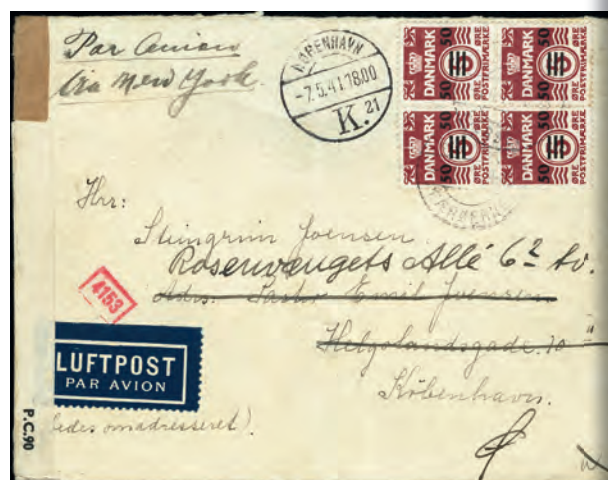 Par Avion
via New York.
KØBENHAVN
-7.5.41 18.00
K. 21
50 DANMARK ØRE POSTFRIMÆRKE
50 DANMARK ØRE POSTFRIMÆRKE
50 DANMARK ØRE POSTFRIMÆRKE
50 DANMARK ØRE POSTFRIMÆRKE
Hr:
Steingrim Joensen
Rosenvængets Allé 6² tv.
Adrs. Pastor Emil Joensen
Helgolandsgade. 10
København.
4153
LUFTPOST
PAR AVION
P.C.90
omadresseret).